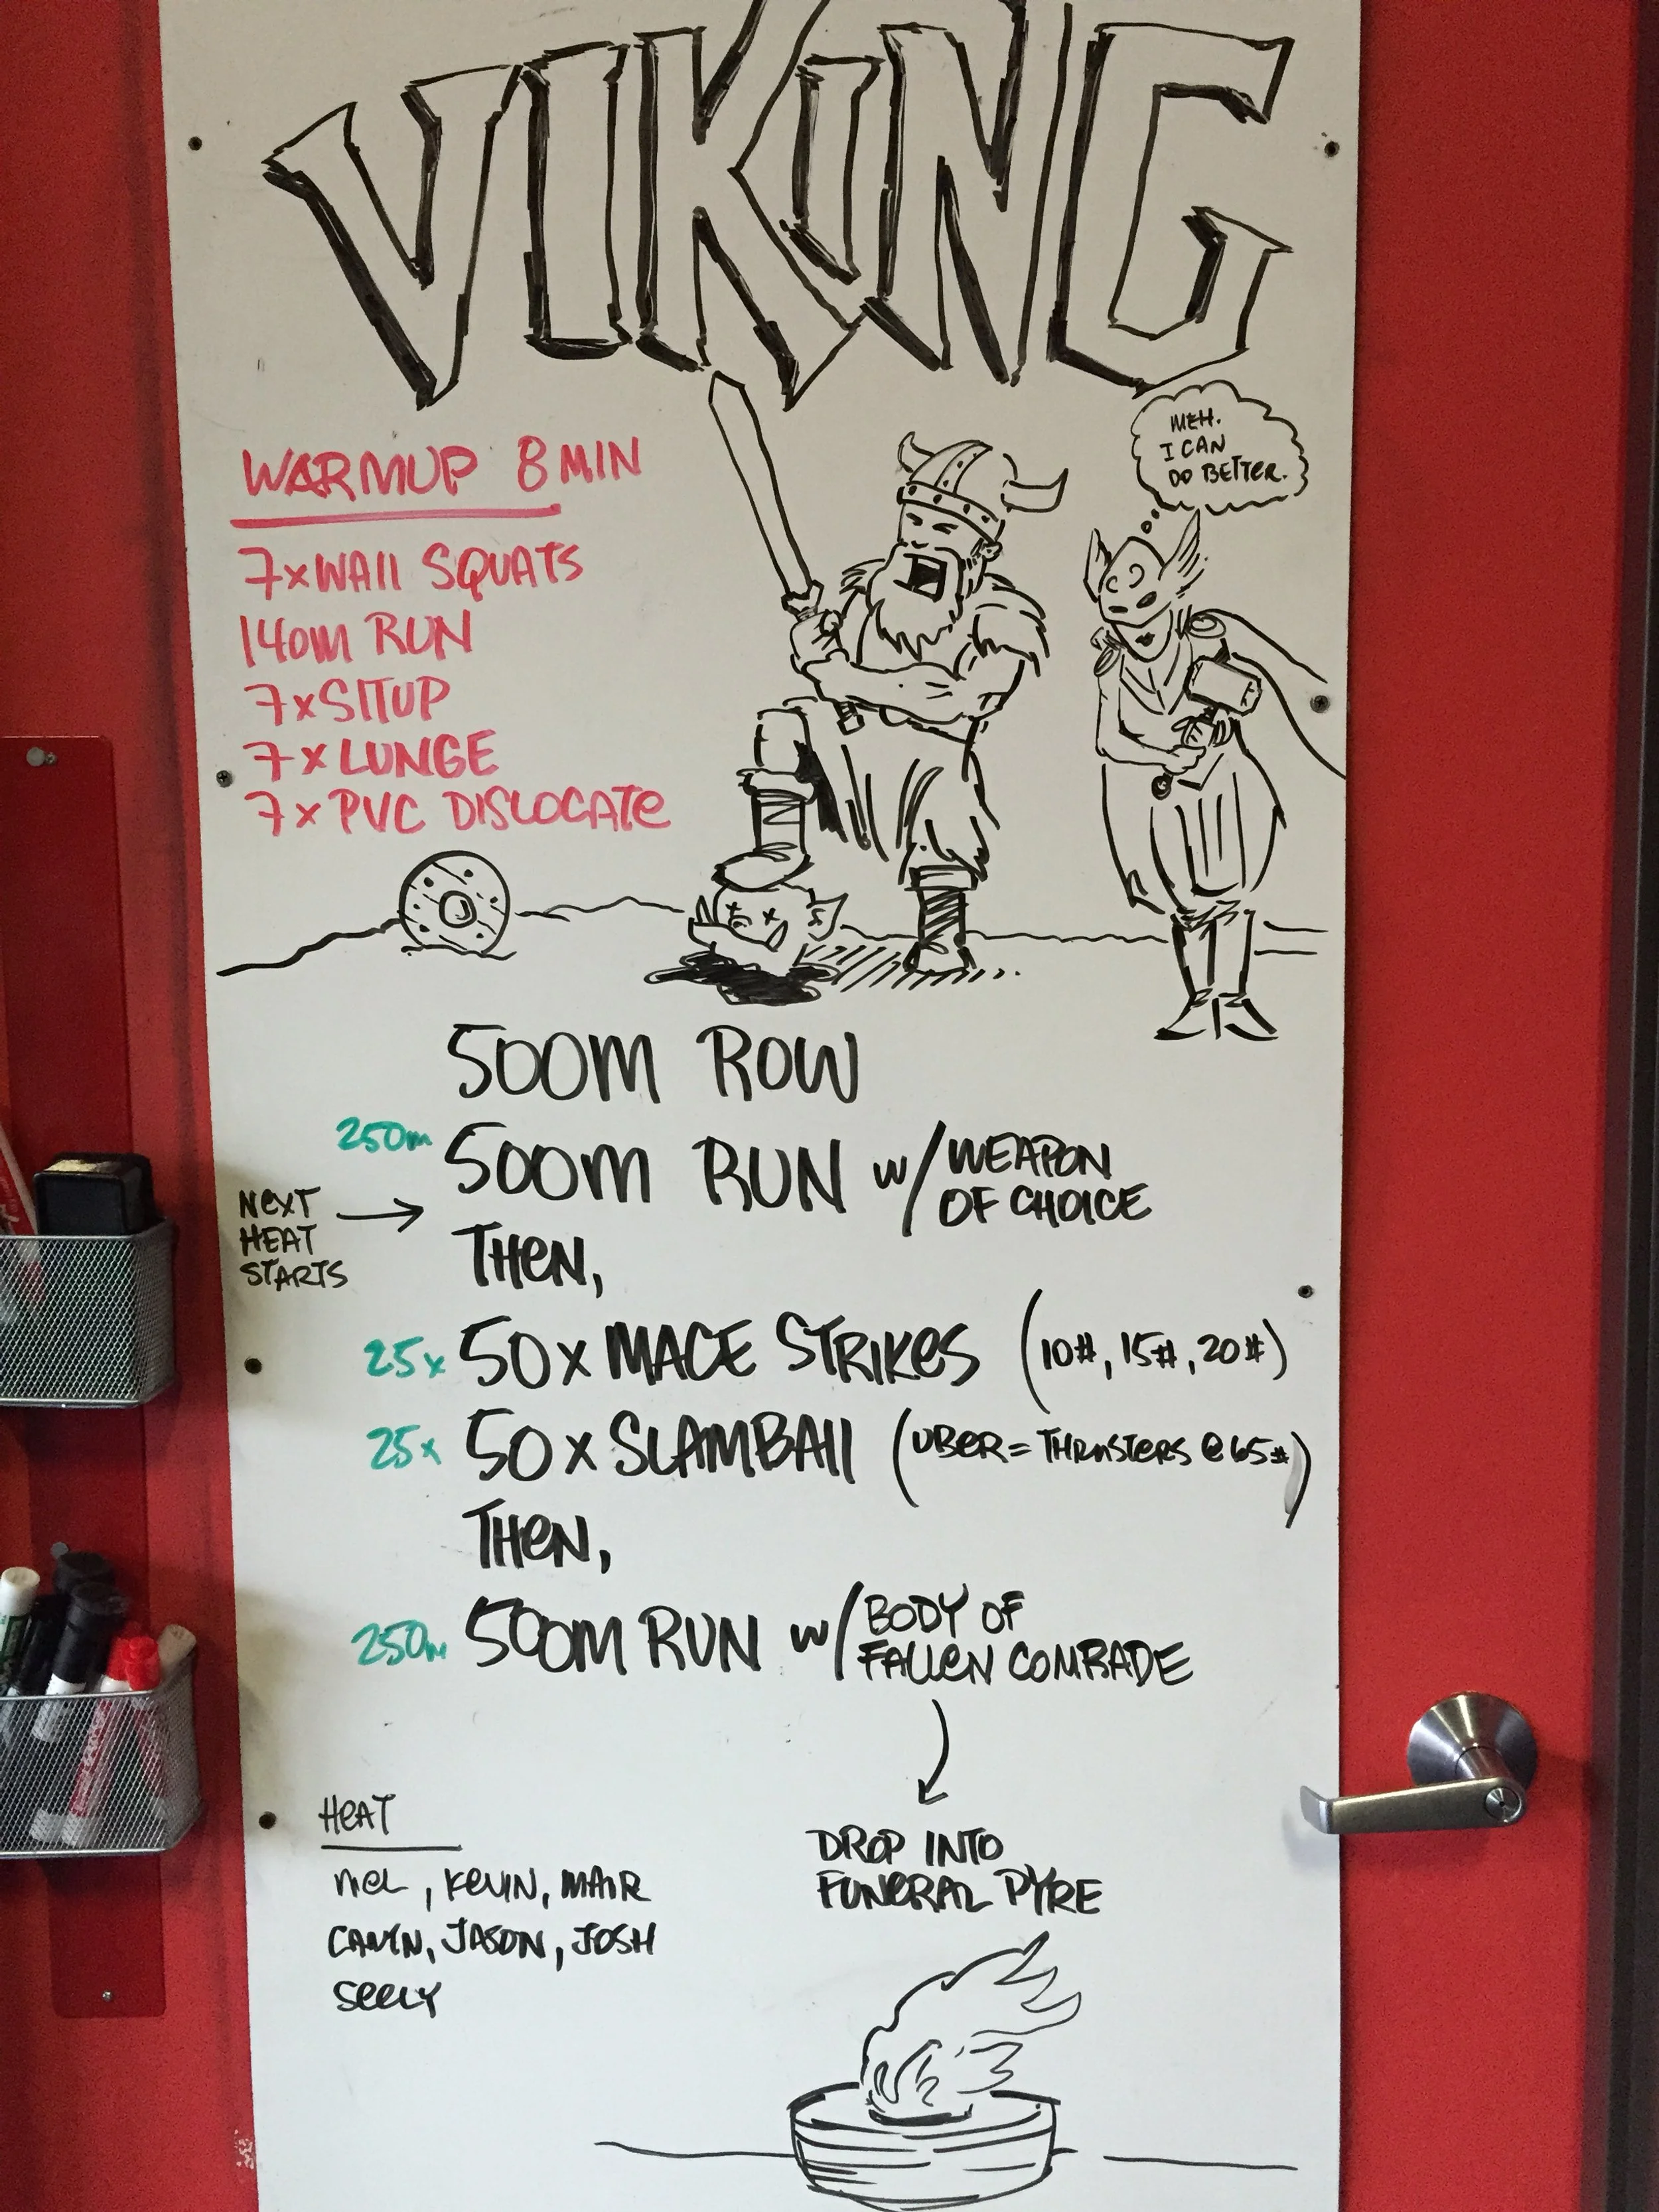 VIKING
MEH.
I CAN
DO BETTER.
WARMUP 8 MIN
7x WALL SQUATS
140M RUN
7x SITUP
7x LUNGE
7x PVC DISLOCATE
500M ROW
250m
500M RUN w/ WEAPON
OF CHOICE
NEXT
HEAT
STARTS
THEN,
25x 50x MACE STRIKES (10#, 15#, 20#)
25x 50x SLAMBALL (UBER = THRUSTERS @ 65#)
THEN,
250m 500M RUN w/ BODY OF
FALLEN COMRADE
DROP INTO
FUNERAL PYRE
HEAT
MEL, KEVIN, MAIR
JASON, JOSH
SEELY